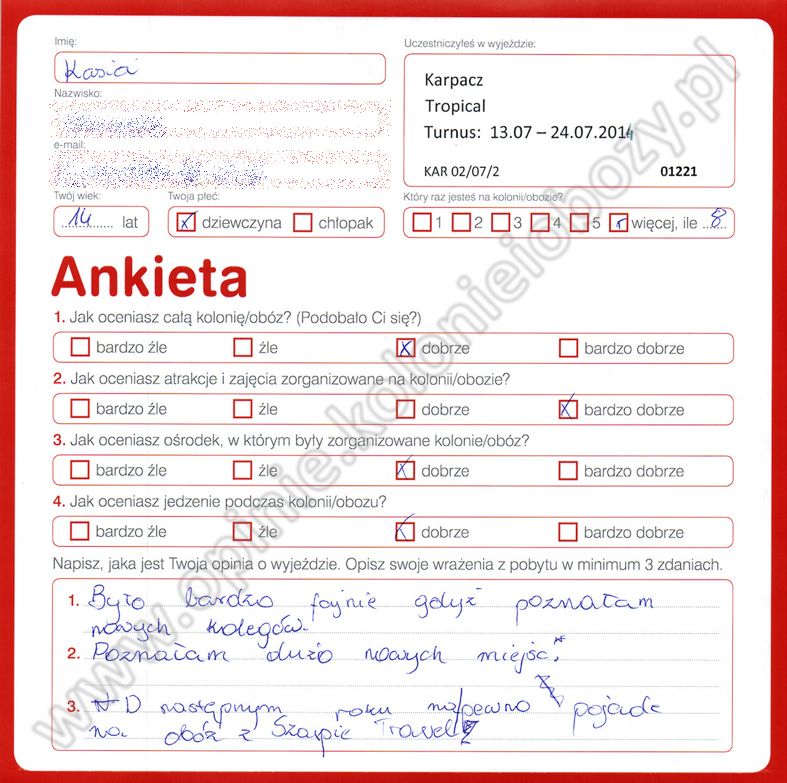 Imię:
Uczestniczyłeś w wyjeździe:
Kasia
Karpacz
Nazwisko:
Tropical
Turnus: 13.07 – 24.07.2014
e-mail:
KAR 02/07/2 01221
Twój wiek: Twoja płeć: Który raz jesteś na kolonii/obozie?
14 lat dziewczyna chłopak 1 2 3 4 5 więcej, ile 8
Ankieta
1. Jak oceniasz całą kolonię/obóz? (Podobało Ci się?)
bardzo źle źle dobrze bardzo dobrze
2. Jak oceniasz atrakcje i zajęcia zorganizowane na kolonii/obozie?
bardzo źle źle dobrze bardzo dobrze
3. Jak oceniasz ośrodek, w którym były zorganizowane kolonie/obóz?
bardzo źle źle dobrze bardzo dobrze
4. Jak oceniasz jedzenie podczas kolonii/obozu?
bardzo źle źle dobrze bardzo dobrze
Napisz, jaka jest Twoja opinia o wyjeździe. Opisz swoje wrażenia z pobytu w minimum 3 zdaniach.
1. Było bardzo fajnie gdyż poznałam
nowych kolegów.
2. Poznałam dużo nowych miejsc.
3. D następnym roku napewno pojade
na obóz z Szarpie Travel
www.opinie.kolonieiobozy.pl